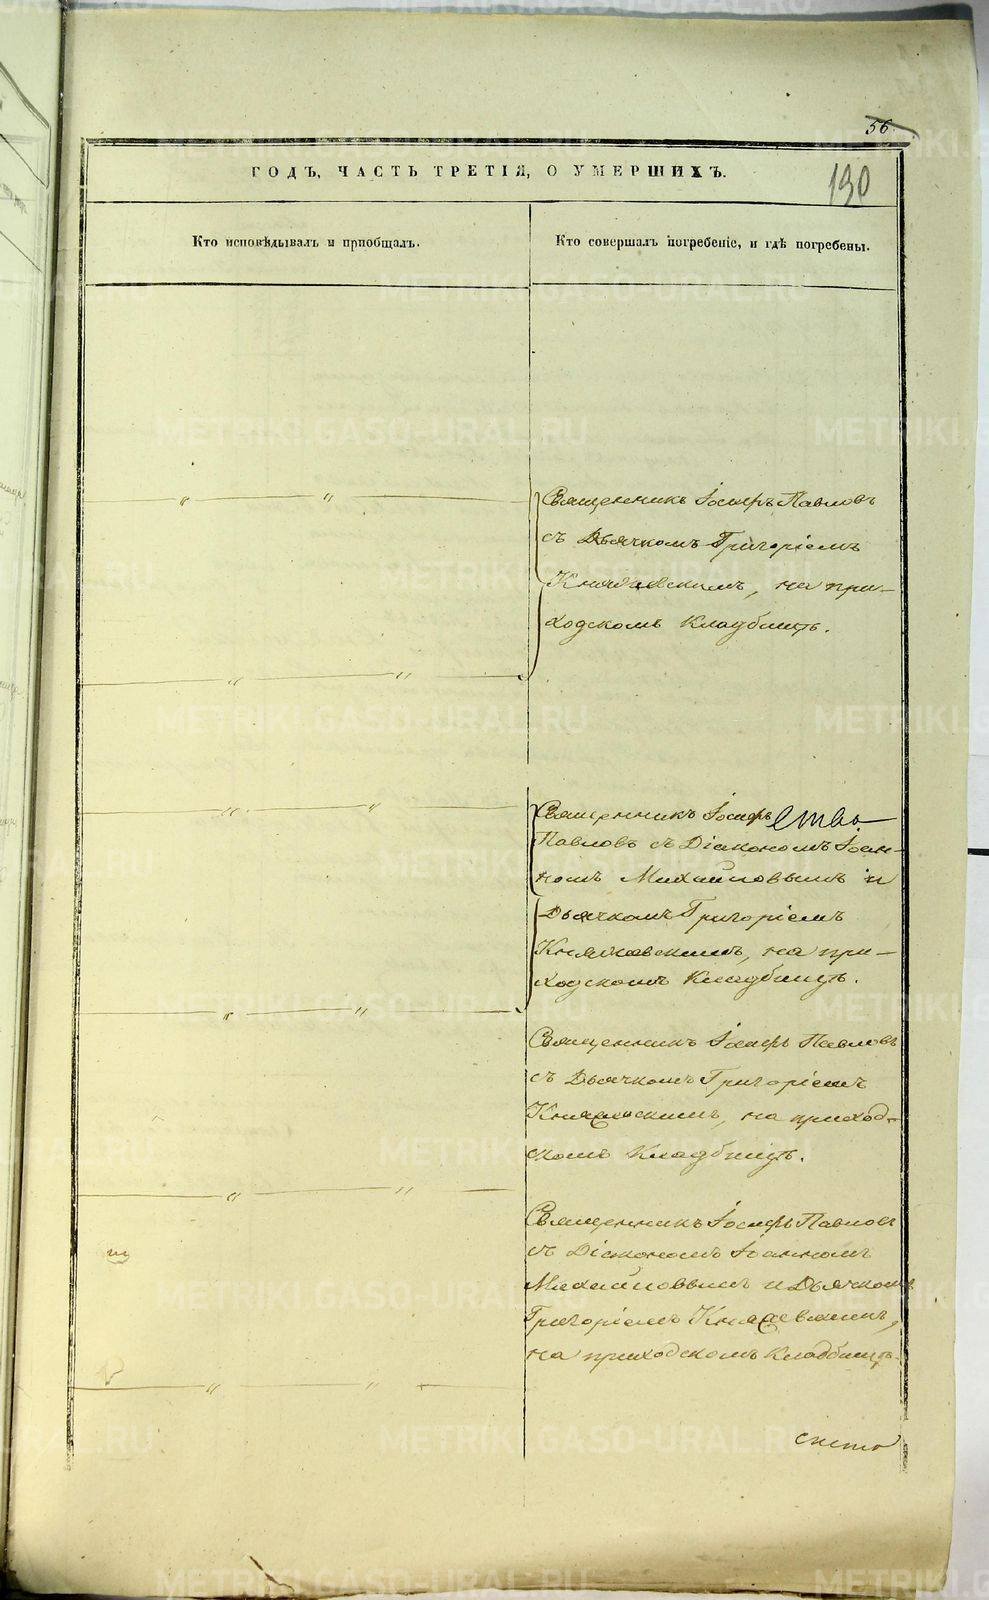 56
ГОДЪ, ЧАСТЬ ТРЕТІЯ, О УМЕРШИХЪ.
190
Кто исповѣдывалъ и пріобщалъ.
Кто совершалъ погребеніе, и гдѣ погребены.
Священникъ Іосифъ Павловъ
съ Дьячкомъ Григоріемъ
на при-
ходскомъ кладбищѣ.
Священникъ Іосифъ
Павловъ съ Діакономъ Іоан-
номъ Михайловымъ и
Дьячкомъ Григоріемъ
на при-
ходскомъ кладбищѣ.
Священникъ Іосифъ Павловъ
съ Дьячкомъ Григоріемъ
на приход-
скомъ кладбищѣ.
Священникъ Іосифъ Павловъ
съ Діакономъ Іоанномъ
Михайловымъ и Дьячкомъ
Григоріемъ
на приходскомъ кладбищѣ.
METRIKI.GASO-URAL.RU